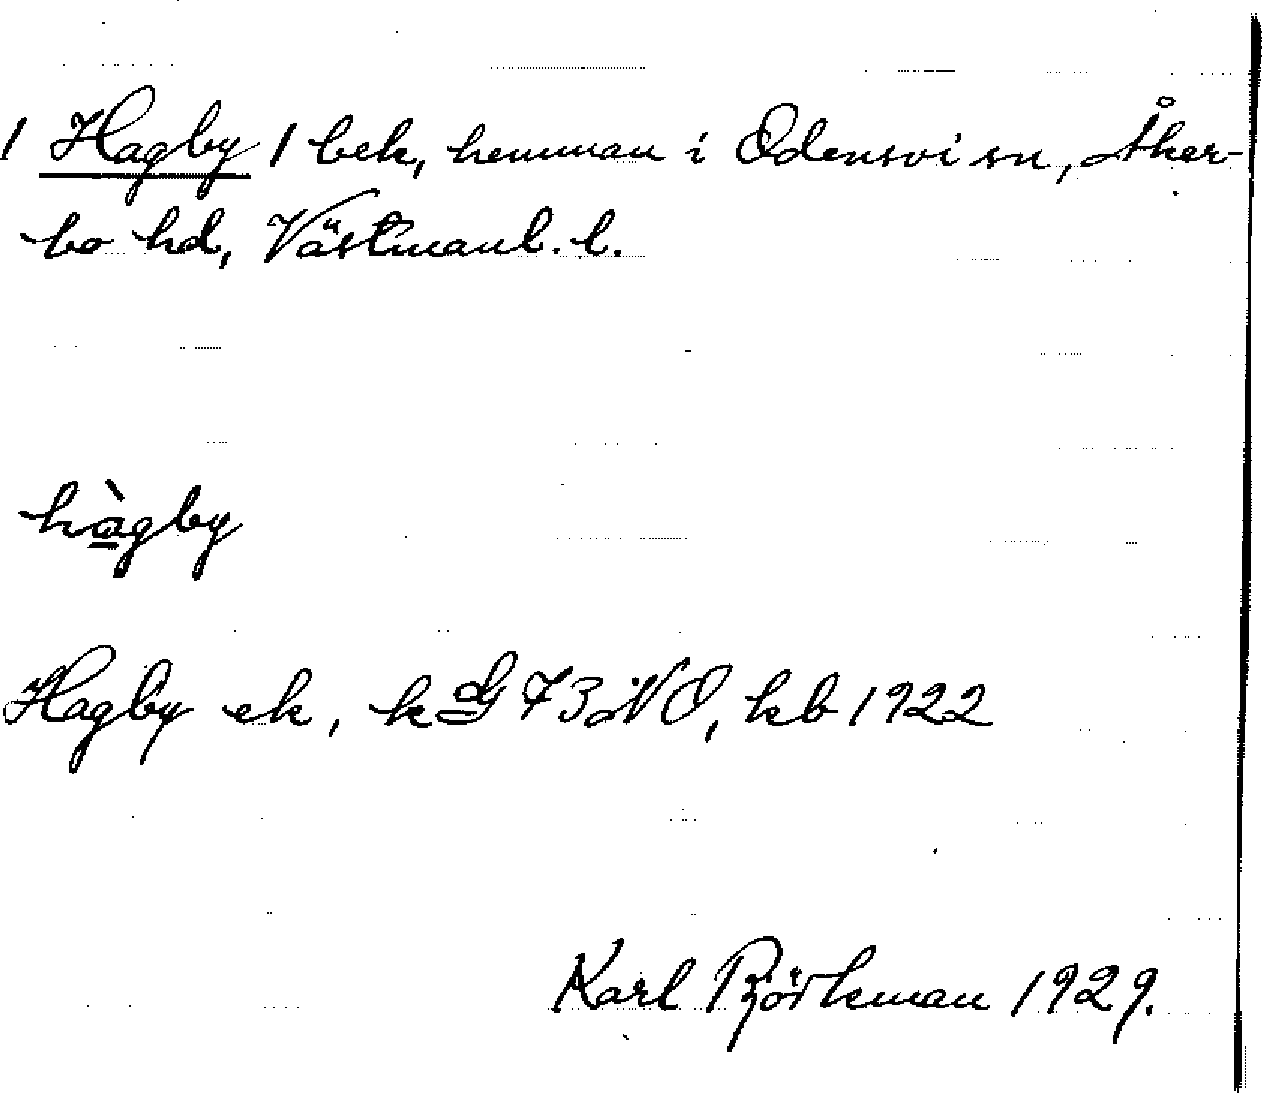 / Hagby / bek, hemman i Odensvi sn, Åker-
bo hd, Västmanl. l.
hàgby
Hagby ek, k G 73 NO, kb 1922
Karl Björkman 1929.